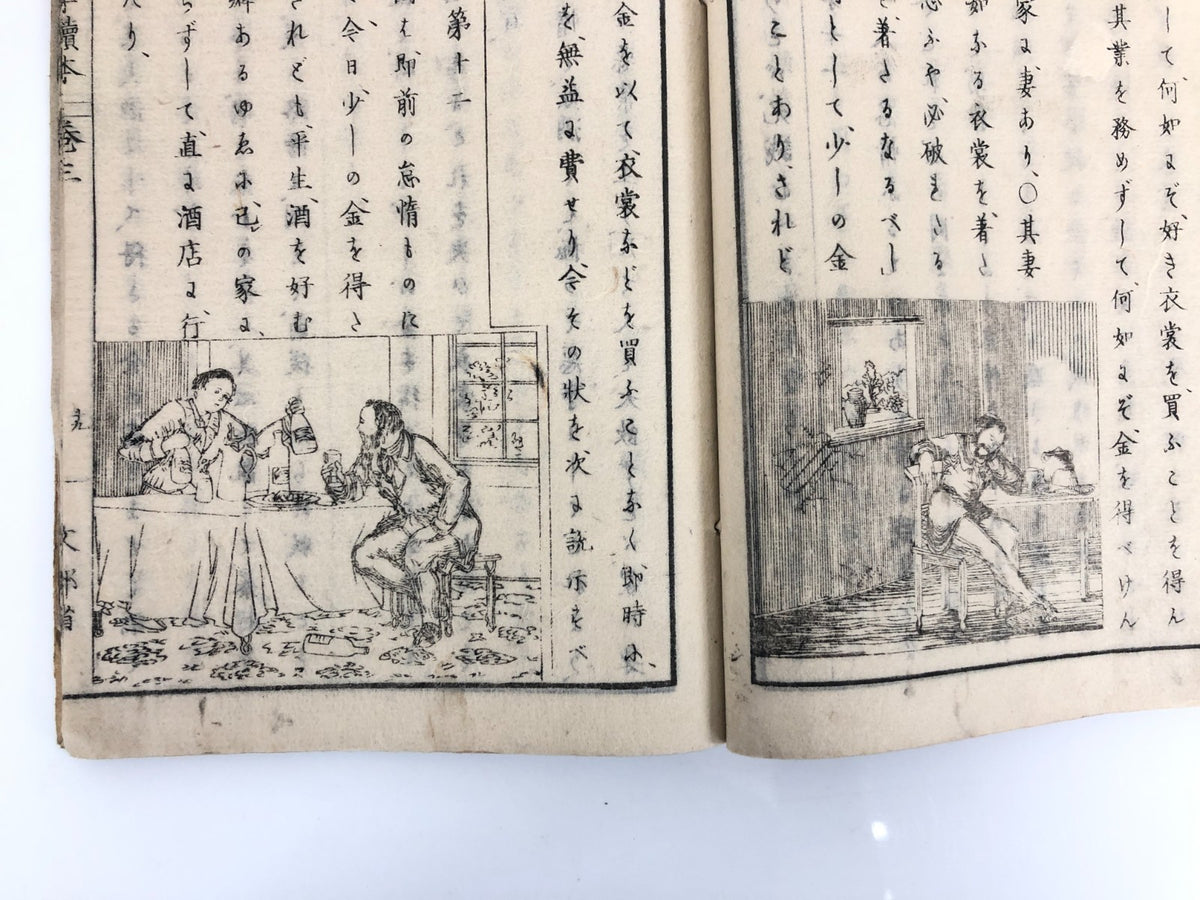 して何如にぞ好き衣裳を、買ふことを得ん
其業を務めずして、何如にぞ金を得べけん
家に妻あり、〇其妻
如なる衣裳を着
思ふや必破れたる
着たるなるべし
として少しの金
ことあり、されど
金を以て衣裳などを買ふことなく即時に、
を無益に費せり今その状を次に説示すべ
第十二
即前の怠惰ものに
今日少しの金を得た
されども平生酒を好む
癖あるゆゑに己の家に、
らずして直に酒店に行
たり、
讀本 巻三
文部省